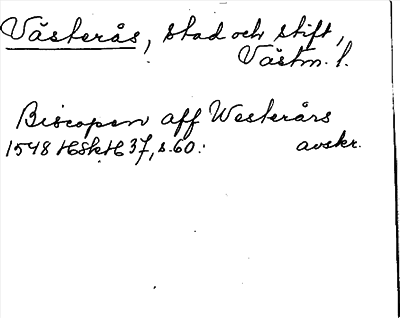 Västerås, stad och stift,
Västm. l.
Biscopen aff Westerårs
1548 HSkH 37, s. 60. avskr.